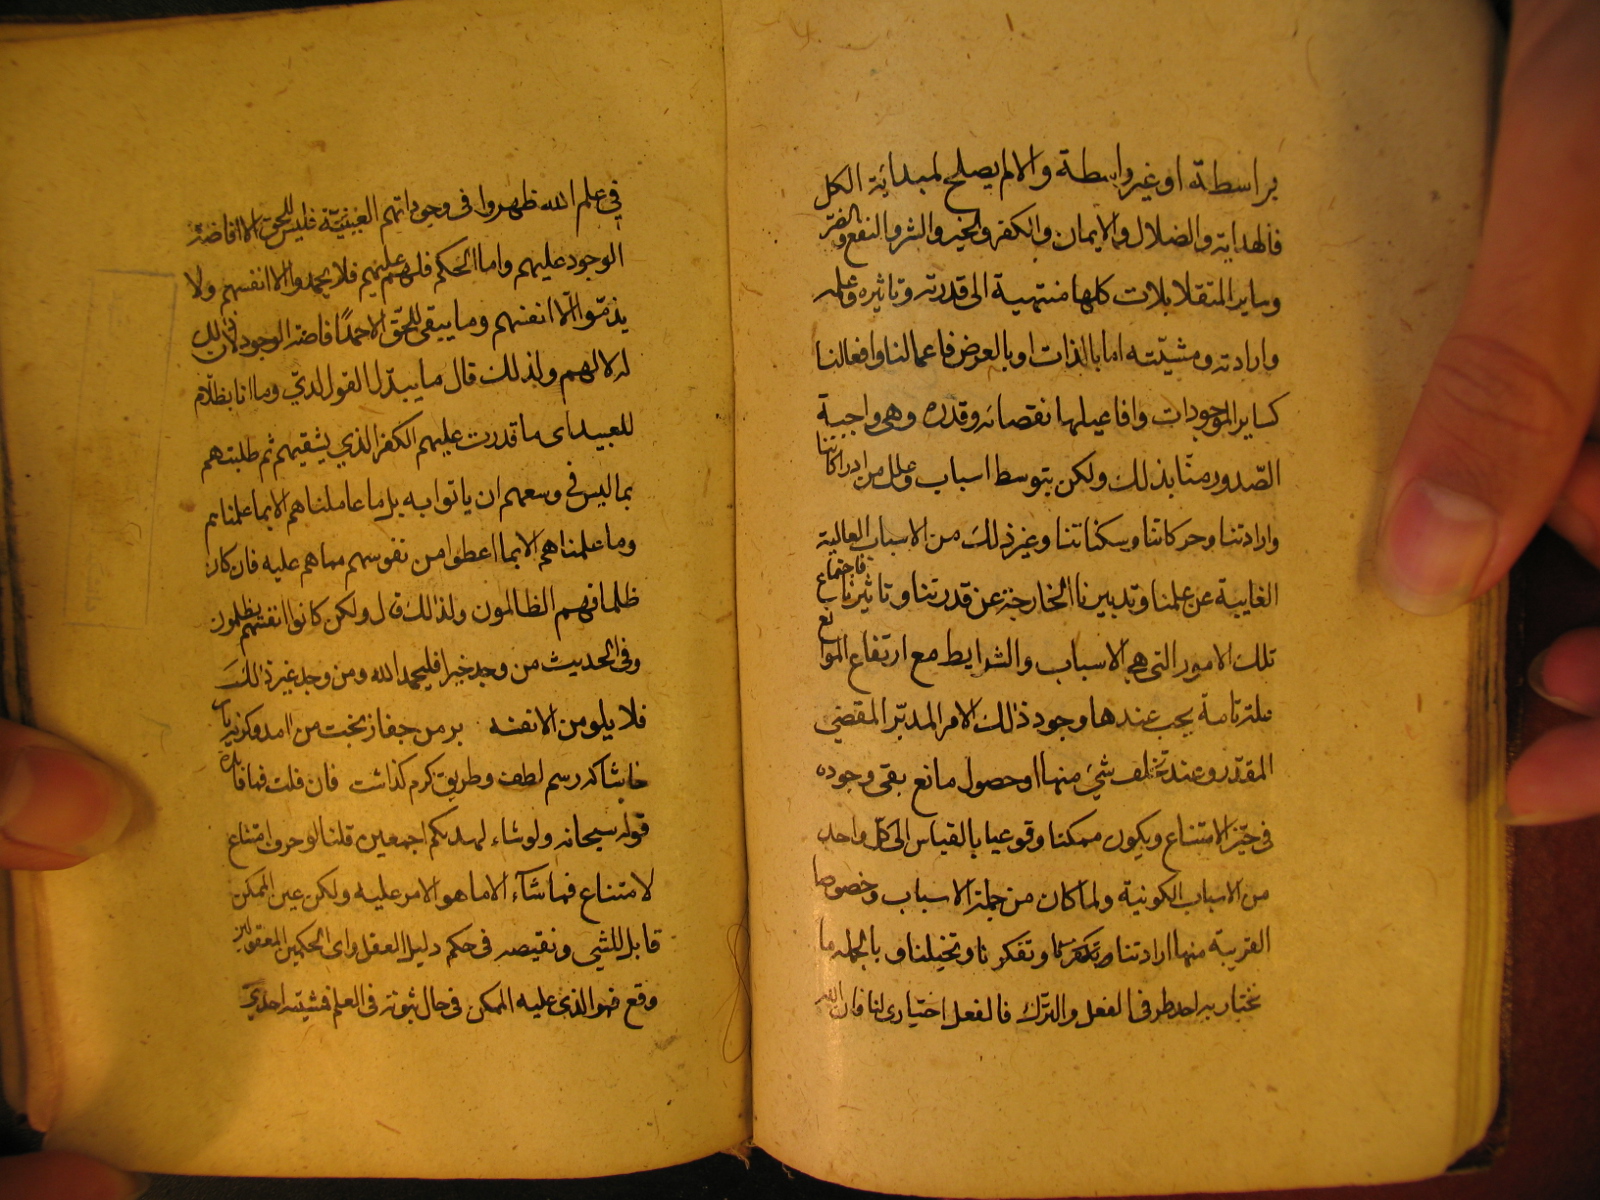 بواسطة او غير واسطة والا لم يصلح لمبدائية الكل
فالهداية والضلال والايمان والكفر والخير والشر والنفع والضر
وساير المتقابلات كلها منتهية الى قدرته وتاثيره وعلمه
وارادته ومشيّته اما بالذات او بالعرض فاعمالنا وافعالنا
كساير الموجودات وافاعيلها بقضائه وقدره وهى واجبة
الصّدور منّا بذلك ولكن بتوسط اسباب وعلل من ادراكاتنا
وارادتنا وحركاتنا وسكناتنا وغير ذلك من الاسباب العالية
الغايبة عن علمنا وتدبيرنا الخارجة عن قدرتنا وتاثيرنا فاجتماع
تلك الامور التى هى الاسباب والشرايط مع ارتفاع الموانع
علة تامة يجب عندها وجود ذلك الامر المدبّر المقضى
المقدّر وعند تخلف شئ منها او حصول مانع بقى وجوده
فى حيّز الامتناع ويكون ممكنا وقوعيا بالقياس الى كل واحد
من الاسباب الكونية ولما كان من جملة الاسباب وخصوصا
القريبة منها ارادتنا وتفكرنا وتخيلنا وبالجمله ما
نختار به احد طرفى الفعل والترك فالفعل اختيارى لنا فان الله
فى علم الله ظهروا فى وجوداتهم العينيّة فليس للحق الا افاضة
الوجود عليهم واما الحكم فلهم عليهم فلا يحمدوا الا انفسهم ولا
يذمّوا الّا انفسهم وما يبقى للحقّ الا حمد افاضة الوجود لان ذلك
له لا لهم ولذلك قال ما يبدّل القول لديّ وما انا بظلّام
للعبيد اى ما قدرت عليهم الكفر الذي يشقيهم ثم طلبتهم
بما ليس فى وسعهم ان ياتوا به بل ما عاملناهم الا بما علمناهم
وما علمناهم الا بما اعطوا من نفوسهم مما هم عليه فان كان
ظلما فهم الظالمون ولذلك قال ولكن كانوا انفسهم يظلمون
وفى الحديث من وجد خيرا فليحمد الله ومن وجد غير ذلك
فلا يلومن الا نفسه بر من جفا ز بخت من امد وكرنه يار
حاشا كه رسم لطف وطريق كرم كذاشت فان قلت فما فايدة
قوله سبحانه ولو شاء لهديكم اجمعين قلنا لو حرف امتناع
لامتناع فما شآء الا ما هو الامر عليه ولكن عين الممكن
قابل للشى ونقيضه فى حكم دليل العقل واى الحكمين المعقولين
وقع فهو الذى عليه الممكن فى حال ثبوته فى العلم فمشيته احدية